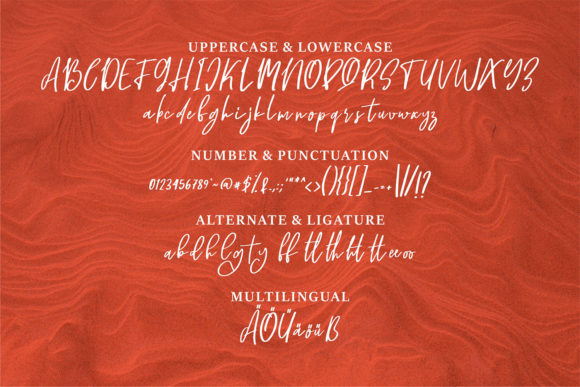 UPPERCASE & LOWERCASE
ABCDEFGHIJKLMNOPQRSTUVWXYZ
abcdefghijklmnopqrstuvwxyz
NUMBER & PUNCTUATION
0123456789`~@#$%&.,:;'"*^<>(){}[]_-=+\|/!?
ALTERNATE & LIGATURE
abdhlgty ff tl th ht tt ee oo
MULTILINGUAL
ÄÖÜäöüß